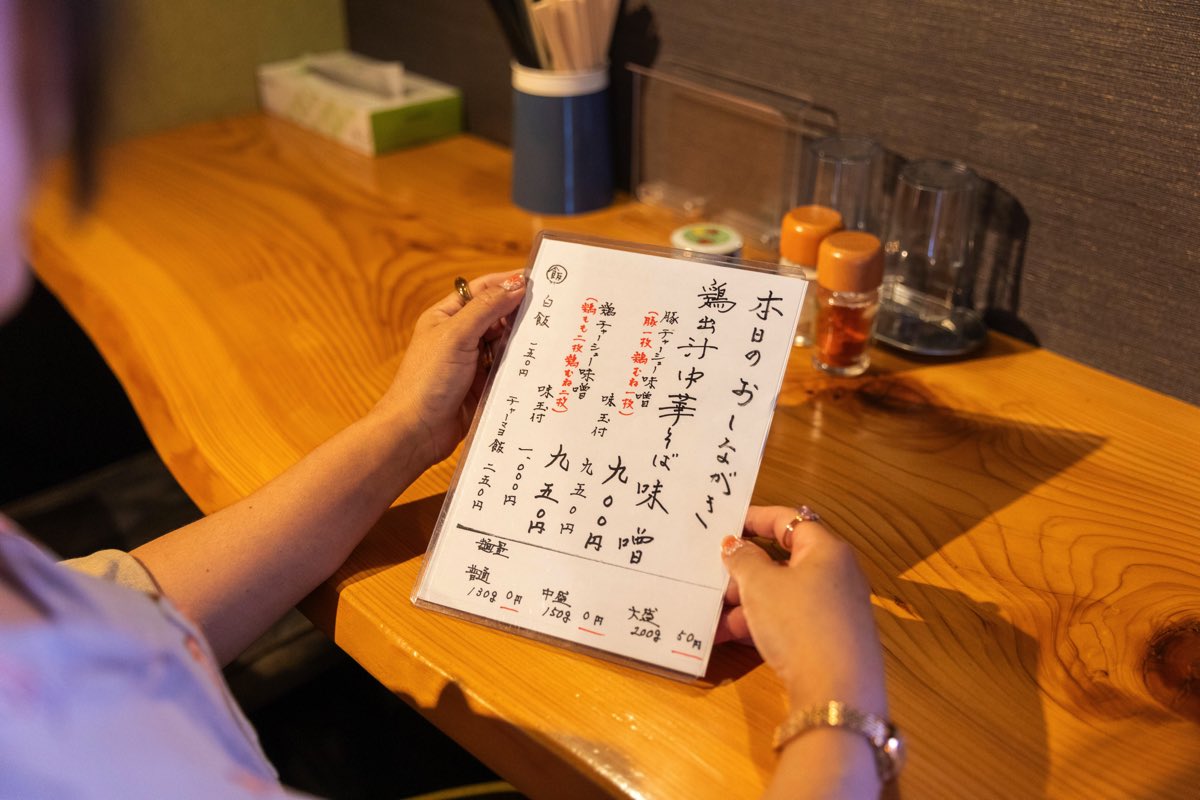 本日のおしながき
鶏出汁中華そば味噌
豚チャーシュー味噌 九〇〇円
(豚一枚 鶏むね一枚)
味玉付 九五〇円
鶏チャーシュー味噌 九五〇円
(鶏もも二枚 鶏むね二枚)
味玉付 一、〇〇〇円
飯
白飯 一五〇円
チャーマヨ飯 二五〇円
麺量
普通 中盛 大盛
130g 0円 150g 0円 200g 50円